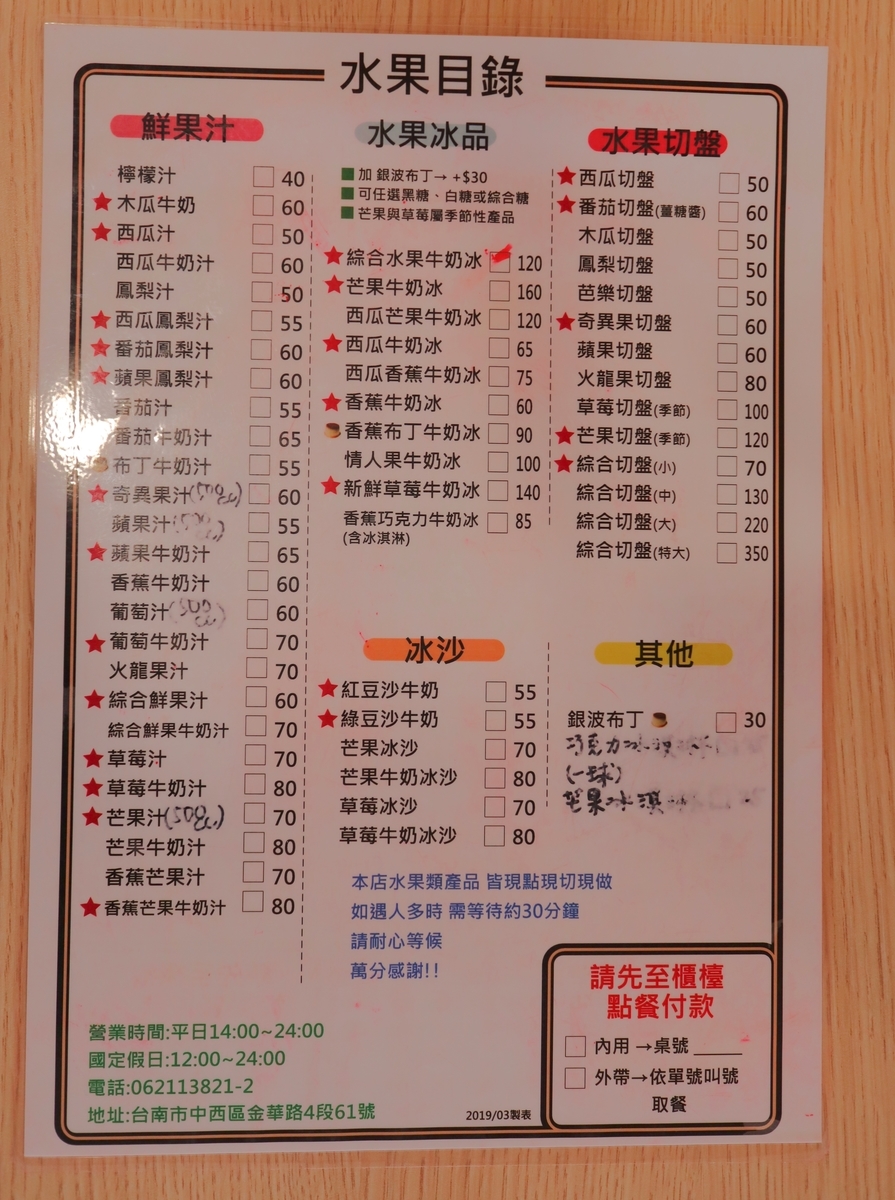 水果目錄
鮮果汁
檸檬汁 40
木瓜牛奶 60
西瓜汁 50
西瓜牛奶汁 60
鳳梨汁 50
西瓜鳳梨汁 55
番茄鳳梨汁 60
蘋果鳳梨汁 60
番茄汁 55
番茄牛奶汁 65
布丁牛奶汁 55
奇異果汁(500cc) 60
蘋果汁 55
蘋果牛奶汁 65
香蕉牛奶汁 60
葡萄汁(500cc) 60
葡萄牛奶汁 70
火龍果汁 70
綜合鮮果汁 60
綜合鮮果牛奶汁 70
草莓汁 70
草莓牛奶汁 80
芒果汁(500cc) 70
芒果牛奶汁 80
香蕉芒果汁 70
香蕉芒果牛奶汁 80
水果冰品
加 銀波布丁→ +$30
可任選黑糖、白糖或綜合糖
芒果與草莓屬季節性產品
綜合水果牛奶冰 120
芒果牛奶冰 160
西瓜芒果牛奶冰 120
西瓜牛奶冰 65
西瓜香蕉牛奶冰 75
香蕉牛奶冰 60
香蕉布丁牛奶冰 90
情人果牛奶冰 100
新鮮草莓牛奶冰 140
香蕉巧克力牛奶冰 85
(含冰淇淋)
水果切盤
西瓜切盤 50
番茄切盤(薑糖醬) 60
木瓜切盤 50
鳳梨切盤 50
芭樂切盤 50
奇異果切盤 60
蘋果切盤 60
火龍果切盤 80
草莓切盤(季節) 100
芒果切盤(季節) 120
綜合切盤(小) 70
綜合切盤(中) 130
綜合切盤(大) 220
綜合切盤(特大) 350
冰沙
紅豆沙牛奶 55
綠豆沙牛奶 55
芒果冰沙 70
芒果牛奶冰沙 80
草莓冰沙 70
草莓牛奶冰沙 80
其他
銀波布丁 30
巧克力冰淇淋
(一球)
芒果冰淇
本店水果類產品 皆現點現切現做
如遇人多時 需等待約30分鐘
請耐心等候
萬分感謝!!
營業時間:平日14:00~24:00
國定假日:12:00~24:00
電話:062113821-2
地址:台南市中西區金華路4段61號
2019/03製表
請先至櫃檯
點餐付款
內用→桌號
外帶→依單號叫號
取餐